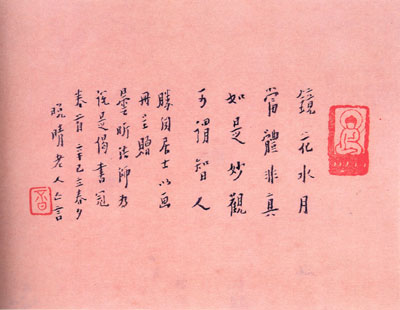 鏡花水月
當體非真
如是妙觀
可謂智人
居士以画
冊贈
曇昕法師为
說是偈書冠
卷首 辛巳立春夕
晚晴老人亡言